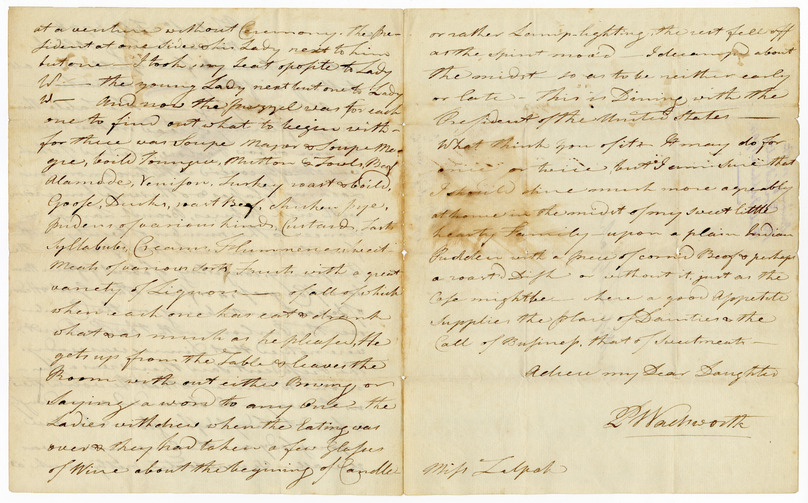 at a venture without Ceremony. the Pre-
sident at one side & his Lady next to him
but one — I took my Seat oposite to Lady
W— the young Lady next but one to Lady
W— And now the puzzel was for each
one to find out what to begin with —
for there was Soupe Major & Soupe Ma-
gre, boild Toungue, Mutton & Fowls, Beef
Alamode, Venison, Turkey roast & boild,
Goose, Ducks, roast Beef, chicken pyes,
Pudens of various kinds, Custard, Tarts
Syllabubs, Creams, Flummery sweet
Meats of various sorts, Fruit, with a great
variety of Liquors — of all of which
when each one has eat & drank
what & as much as he pleased, He
gets up from the Table & leaves the
Room with out either Bowing or
saying a word to any One — the
Ladies withdrew when the Eating was
over & they had taken a few Glasses
of Wine about the begining of Candle
or rather Lamp-lighting, the rest fell off
as the spirit moved — I decamped about
the midst so as to be neither early
or late — This is Dining with the
President of the United States —
What think you of it — It may do for
once or twice but I am sure that
I should dine much more agreably
at home in the midst of my sweet little
hearty Family — upon a plain Indian
Pudden with a piece of corned Beef & perhaps
a roast Dish or without it, just as the
Case might be — where a good Appetite
supplies the place of Dainties & the
Call of Business, that of Sweetmeats —
Adieu my Dear Daughter
P Wadsworth
Miss Zilpah